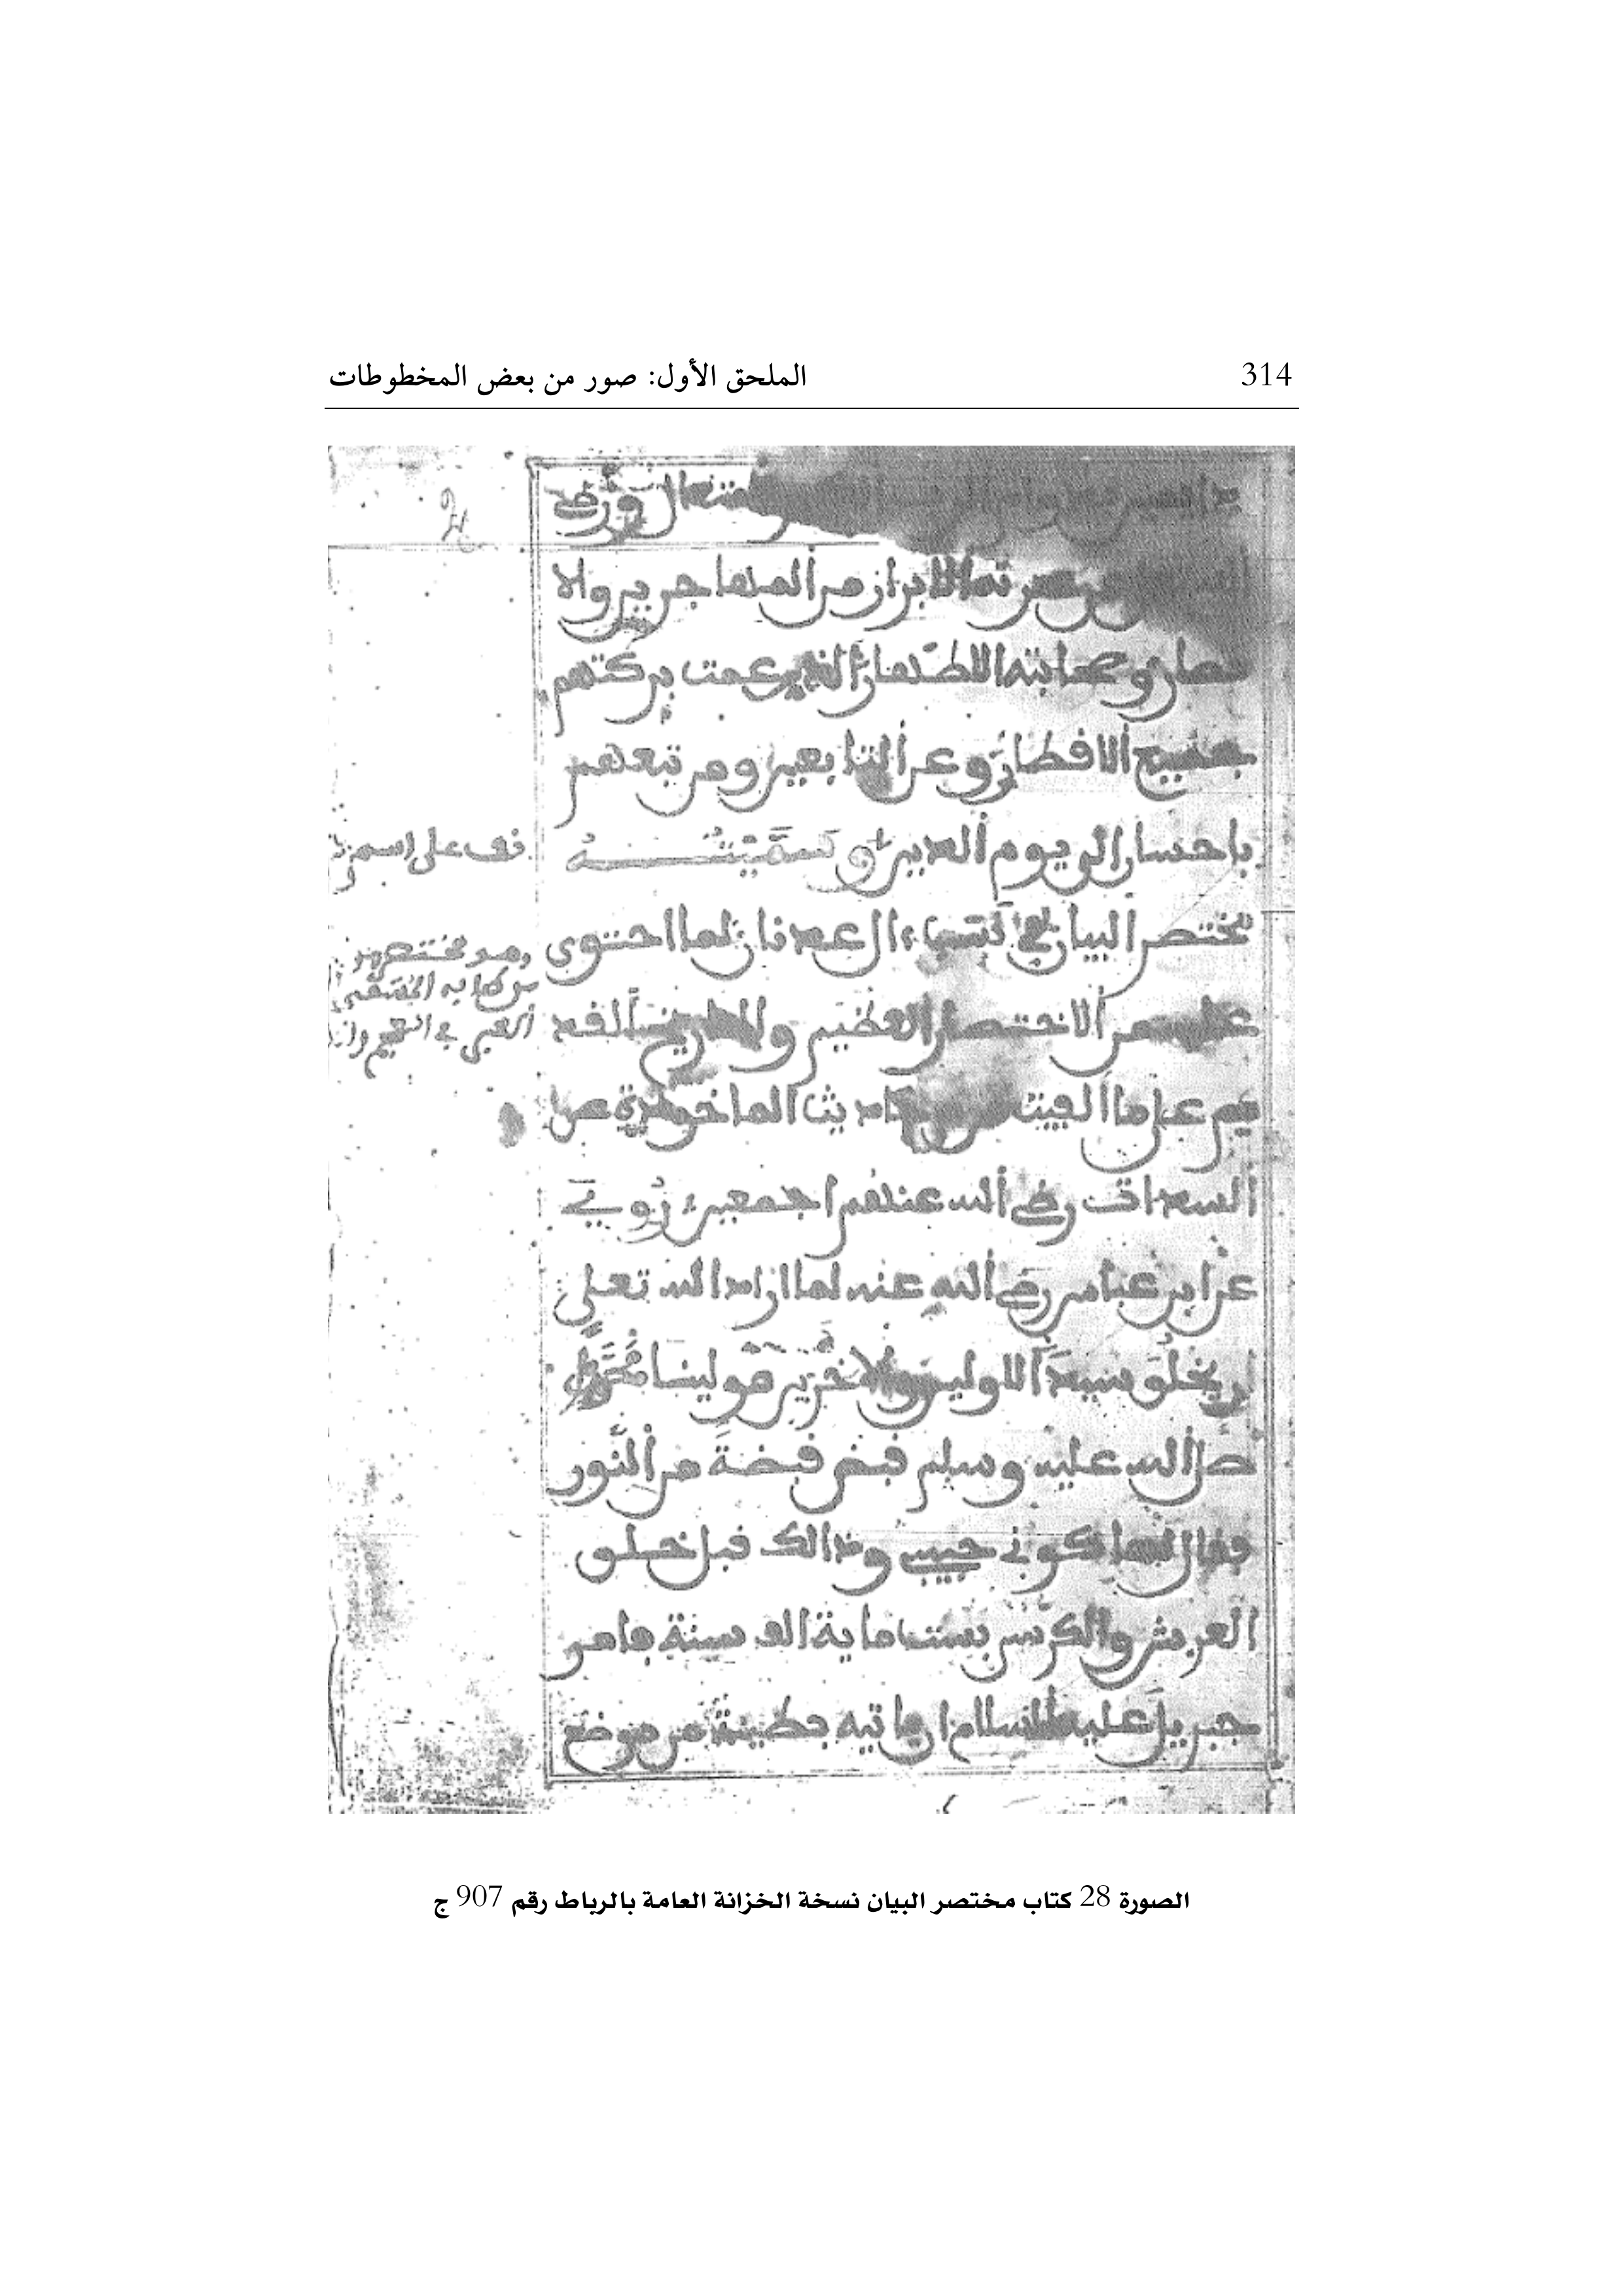 314 الملحق الأول: صور من بعض المخطوطات
ورضى
الابرار من المهاجرين والا
نصار وصحابته الاطهار الذين عمت بركتهم
جميع الافطار وعن التابعين ومن تبعهم
باحسان الى يوم الدين وسميته
مختصر البيان في نسب ءال عدنان لما احتوى
عليه من الاختصار العظيم والتاريخ الفد
يم على ما الفيته من الاحاديث الماخوذة عن
السدات رضي الله عنهم اجمعين روي
عن ابن عباس رضي الله عنه لما اراد الله تعلى
ان يخلق سيد الاولين والاخرين مولينا محمد
صلى الله عليه وسلم قبض قبضة من النور
فقال لها كوني حبيبي وذالك قبل خلق
العرش والكرسي بستماية الف سنة فامر
جبريل عليه السلام ان ياتيه بطينة من موضع
قف على اسم
وهو مختصر
من كتابه
الصورة 28 كتاب مختصر البيان نسخة الخزانة العامة بالرباط رقم 907 ج